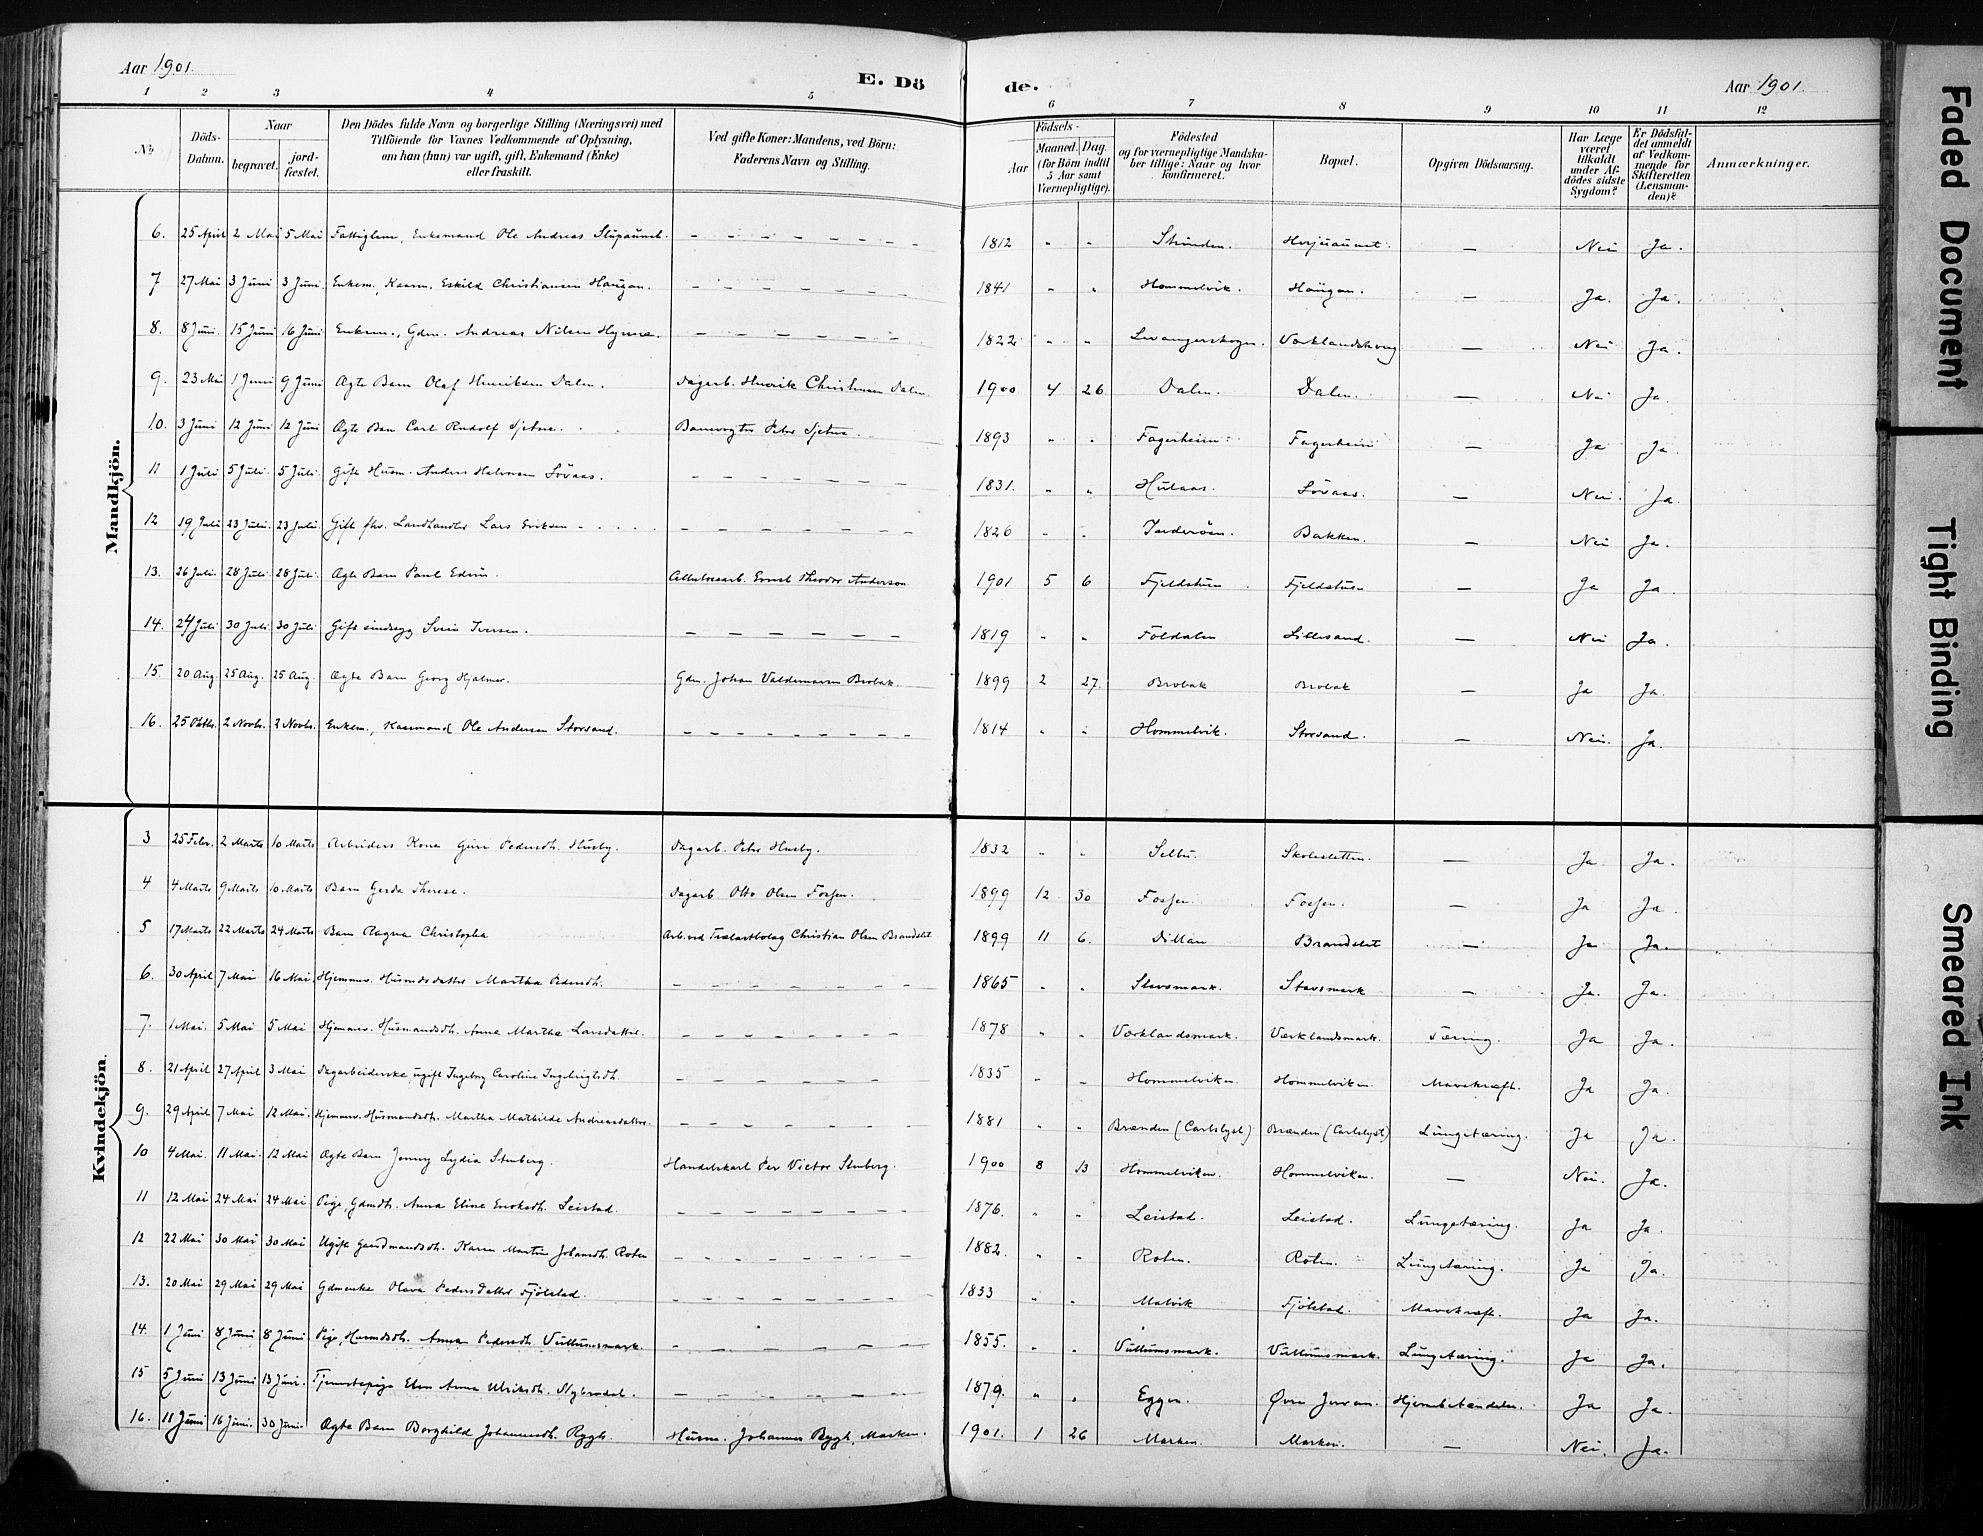 Aar 1901.
E. Dö
de.
Aar 1901
1 2 3 4 5 6 7 8 9 10 11 12
No
Döds-Datum.
Naar
begravet. jord-fæstet.
Den Dödes fulde Navn og borgerlige Stilling (Næringsvei) med
Tilföiende for Voxnes Vedkommende af Oplysning,
om han (hun) var ugift, gift, Enkemand (Enke)
eller fraskilt.
Ved gifte Koner: Mandens, ved Börn:
Faderens Navn og Stilling.
Födsels-
Aar
Maaned. Dag.
(for Börn indtil
5 Aar samt
Værnepligtige).
Födested
og for værnepligtige Mandska-
ber tillige: Naar og hvor
konfirmeret.
Bopæl.
Opgiven Dödsaarsag.
Har Læge
været
tilkaldt
under Af-
dödes sidste
Sygdom?
Er Dödsfal-
det anmeldt
af Vedkom-
mende for
Skifteretten
(Lensman-
den)?
Anmærkninger.
Mandkjön.
6. 25 April 2 Mai 5 Mai Fattiglem, Enkemand Ole Andreas 1812 " " Strinden. — Nei Ja.
7 27 Mai 3 Juni 3 Juni Enkem., Kaarm. Eskild Christiansen Haugan. 1841 " " Hommelvik. Haugan. — Ja. Ja.
8. 8 Juni. 15 Juni 16 Juni Enkem., Gdm. Andreas Nilsen Hynne. 1822 " " Levangerskogn. — Nei Ja.
9. 23 Mai 1 Juni 9 Juni Ægte Barn Olaf Henriksen Dalen. Dagarb. Henrik Christiansen Dalen 1900 4 26 Dalen. Dalen. — Nei Ja.
10. 3 Juni 12 Juni 12 Juni Ægte Barn Carl Rudolf Sjetne. Banevogter Peter Sjetne. 1893 " " Fagerheim. Fagerheim — Ja Ja.
11 1 Juli 5 Juli 5 Juli. Gift Husm. Anders Halvorsen Söraas. 1831. " " Hulaas. Söraas. — Nei. Ja.
12 19 Juli 23 Juli. 23 Juli. Gift fhv. Landhandler Lars Eriksen 1826 " " Inderöen. Bakken. — Nei Ja.
13. 26 Juli. 28 Juli 28 Juli. Ægte Barn Paul Edvin. Ernst Theodor Anderson 1901 5 6 Fjeldstuen Fjeldstuen — Ja Ja.
14. 24 Juli 30 Juli 30 Juli Gift sindssyg Svein Iversen. 1819 " " Foldalen Lillesand. — Nei Ja.
15 20 Aug. 25 Aug. 25 Aug. Ægte Barn Georg Hjalmar. Gdm. Johan Valdemarsen Brobak. 1899 2 27. Brobak Brobak — Ja Ja.
16. 25 Oktbr. 2 Novbr. 2 Novbr. Enkem., Kaarmand Ole Andersen Storsand. 1814 " " Hommelvik. Storsand. — Nei. Ja.
Kvindekjön.
3 25 Febr. 2 Marts 10 Marts Arbeiders Kone Guri Pedersdt. Husby. Dagarb. Peter Husby. 1832 " " Selbu. Skolesletten. — Ja Ja.
4 4 Marts 9 Marts 10 Marts Barn Gerda Therese. Dagarb. Otto Olsen Fossen. 1899 12 30 Fossen. Fossen. — Ja Ja.
5 17 Marts 22 Marts 24 Marts Barn Ragna Christopha Arb. ved Trælastbolag Christian Olsen Brandslet 1899 11 6. Dillan Brandslet — Ja Ja.
6. 30 April 7 Mai 16 Mai Hjemmev. Husmdsdatter Martha Pedersdt. 1865 " " Stavsmark. Stavsmark — Ja. Ja.
7. 1 Mai. 5 Mai 5 Mai Hjemmev. Husmandsdt. Anne Martha Larsdatter. 1878 " " Værklandsmark. Værklandsmark. Tæring. Ja Ja.
8. 21 April 27 April 3 Mai Dagarbeiderske ugift Ingeborg Caroline Ingebrigtsdt. 1835 " " Hommelviken Hommelviken. Mavekræft. Ja Ja.
9. 29 April 7 Mai 12 Mai. Hjemmev. Husmandsdt. Martha Mathilde Andreasdatter. 1881 " " Brænden (Carlslyst) Brænden (Carlslyst) Lungetæring. Ja Ja.
10 4 Mai. 11 Mai. 12 Mai Ægte Barn Jenny Lydia Stenberg. Handelskarl Per Victor Stenberg. 1900 8 13 Hommelviken. Hommelviken. — Nei. Ja.
11 12 Mai 24 Mai 24 Mai Pige, Gdmdt. Anna Eline Eriksdt. Leistad. 1876. " " Leistad. Leistad. Lungetæring. Ja Ja.
12 22 Mai 30 Mai 30 Mai Ugift Gaardmandsdt. Karen Martin Johansdt. Roten 1882. " " Roten. Roten. Lungetæring. Ja Ja.
13. 20 Mai 29 Mai 29 Mai Gdmenke Olava Pedersdatter Fjölstad. 1833 " " Malvik Fjölstad. Mavekræft. Ja Ja.
14. 1 Juni 8 Juni 8 Juni Pige, Husmdsdt. Anna Pedersdt. Vullumsmark. 1855. " " Vullumsmark. Vullumsmark. Lungetæring. Ja Ja.
15 5 Juni 13 Juni 13 Juni. Tjenestepige Elen Anna Ulriksdt. 1879. " " Eggen. Øvre Hjernebetændelse. Ja Ja.
16. 11 Juni 16 Juni. 30 Juni. Ægte Barn Borghild Johannesdt. Rygh. Husm. Johannes Rygh, Marken. 1901. 1 26 Marken. Marken. — Nei. Ja.
Faded Document
Tight Binding
Smeared Ink